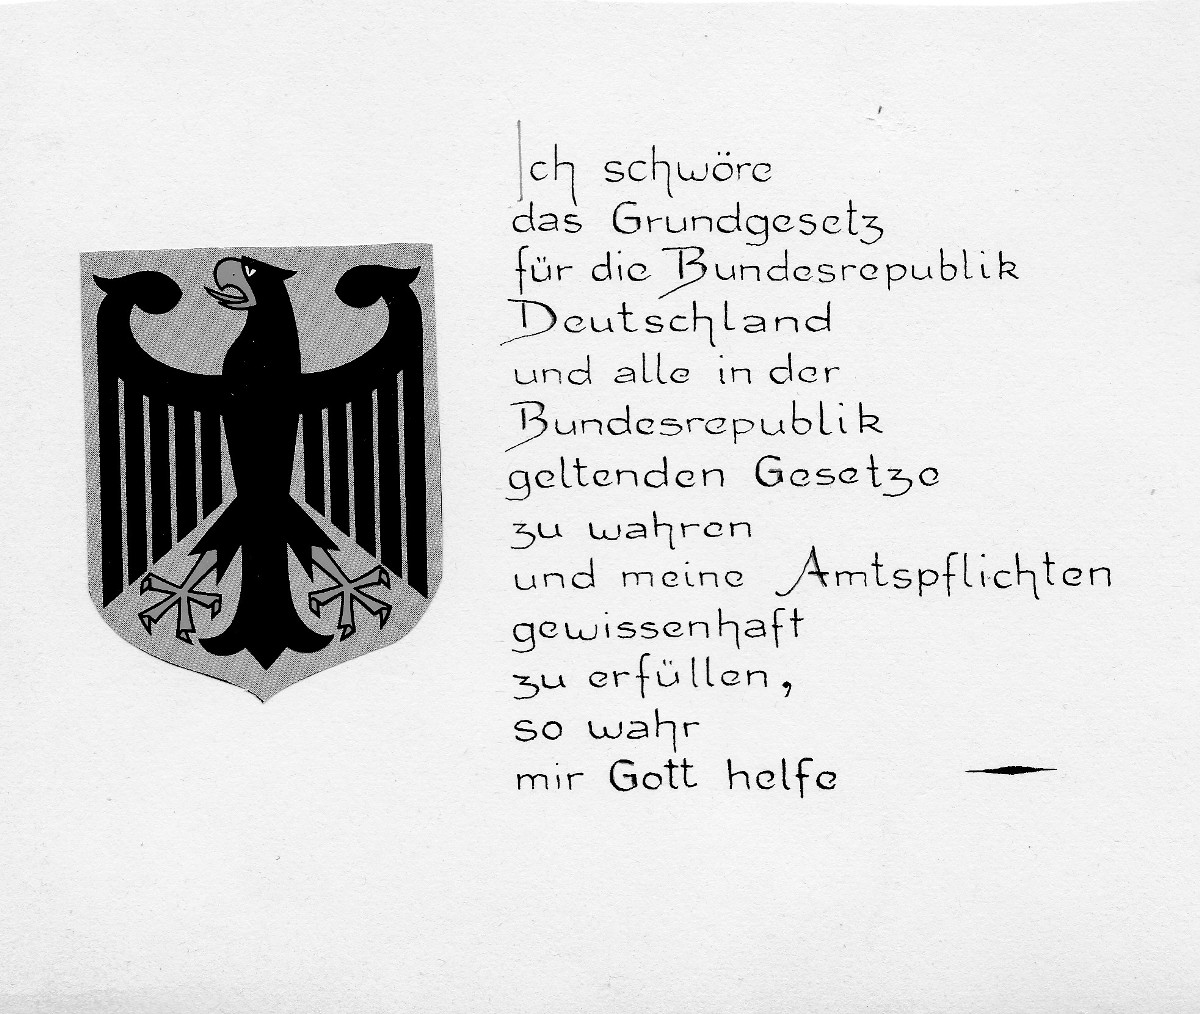 Ich schwöre
das Grundgesetz
für die Bundesrepublik
Deutschland
und alle in der
Bundesrepublik
geltenden Gesetze
zu wahren
und meine Amtspflichten
gewissenhaft
zu erfüllen,
so wahr
mir Gott helfe